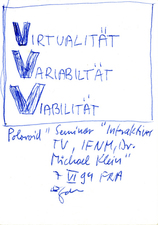 VIRTUALITÄT
VARIABILTÄT
VIABILITÄT
Polaroid "Seminar "Interaktives
TV, IFNM, Dr.
Michael Klein"
7 VI 94 PRA